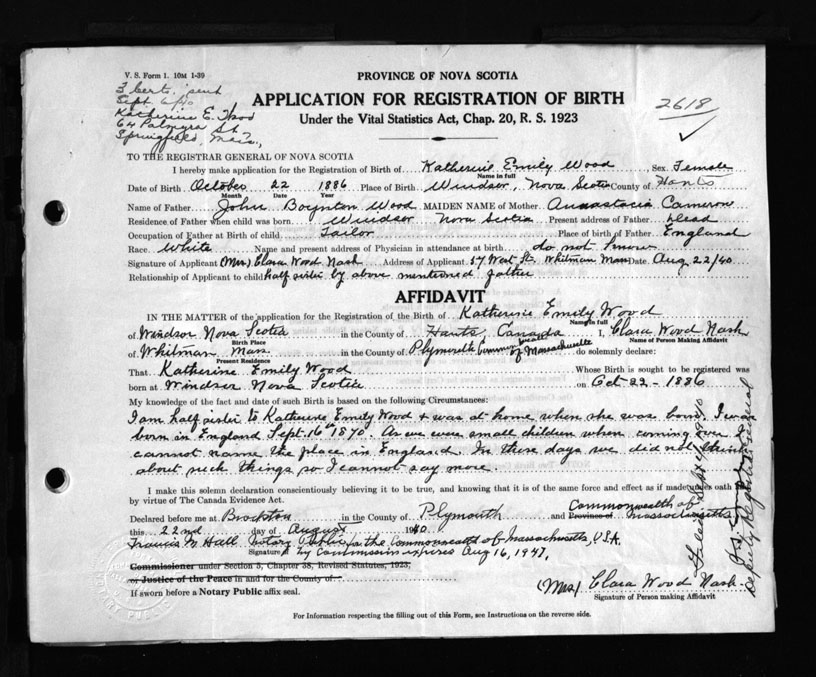 V. S. Form 1. 10M 1-39
3 certs. sent
Sept 6/40
Katherine E. Wood
64 Palmyra St.
Springfield, Mass.,
PROVINCE OF NOVA SCOTIA
APPLICATION FOR REGISTRATION OF BIRTH
Under the Vital Statistics Act, Chap. 20, R. S. 1923
2618
TO THE REGISTRAR GENERAL OF NOVA SCOTIA
I hereby make application for the Registration of Birth of Katherine Emily Wood, Sex Female
Name in full
Date of Birth October 22 1886 Place of Birth Windsor, Nova Scotia County of Hants
Month Date Year
Name of Father John Boynton Wood MAIDEN NAME of Mother Annastacia Cameron
Residence of Father when child was born Windsor Nova Scotia Present address of Father Dead
Occupation of Father at Birth of child Tailor Place of birth of Father England
Race White Name and present address of Physician in attendance at birth do not know
Signature of Applicant (Mrs) Clara Wood Nash Address of Applicant 57 West St. Whitman Mass Date Aug 22/40
Relationship of Applicant to child half sister by above mentioned father
AFFIDAVIT
IN THE MATTER of the application for the Registration of the Birth of Katherine Emily Wood
Name in full
of Windsor Nova Scotia in the County of Hants, Canada I, Clara Wood Nash
Birth Place Name of Person Making Affidavit
of Whitman Mass in the County of Plymouth Commonwealth of Massachusetts do solemnly declare:
Present Residence
That Katherine Emily Wood Whose Birth is sought to be registered was
born at Windsor Nova Scotia on Oct-22-1886
My knowledge of the fact and date of such Birth is based on the following Circumstances:
I am half sister to Katherine Emily Wood & was at home when she was born. I was
born in England Sept. 16th 1870. As we were small children when coming over I
cannot name the place in England. In those days we did not think
about such things so I cannot say more.
I make this solemn declaration conscientiously believing it to be true, and knowing that it is of the same force and effect as if made under oath
by virtue of The Canada Evidence Act.
Declared before me at Brockton in the County of Plymouth and Province of Commonwealth of Massachusetts
this 22nd day of August 1940.
Francis M Hall Notary Public in the Commonwealth of Massachusetts, U.S.A.
Signature My Commission expires Aug 16, 1947.
Commissioner under Section 5, Chapter 38, Revised Statutes, 1923,
or Justice of the Peace in and for the County of
If sworn before a Notary Public affix seal.
(Mrs) Clara Wood Nash
Signature of Person making Affidavit
For Information respecting the filling out of this Form, see Instructions on the reverse side.
Deputy Registrar General